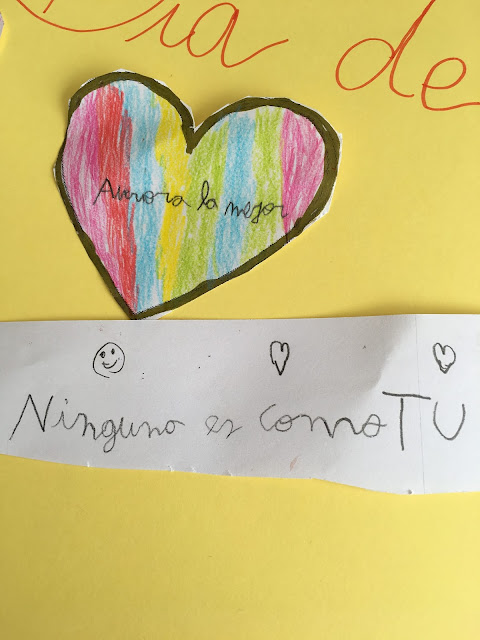 Dia de
Aurora la mejor
Ninguno es como TU